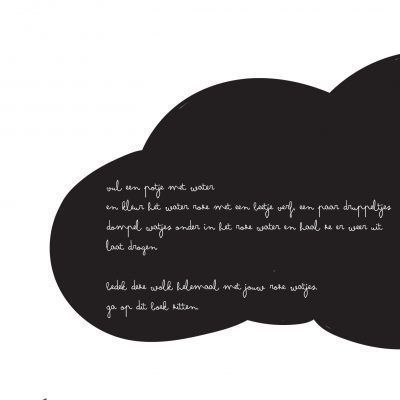 vul een potje met water
en kleur het water roze met een beetje verf, een paar druppeltjes
dompel watjes onder in het roze water en haal ze er weer uit
laat drogen
bedek deze wolk helemaal met jouw roze watjes.
ga op dit boek zitten.